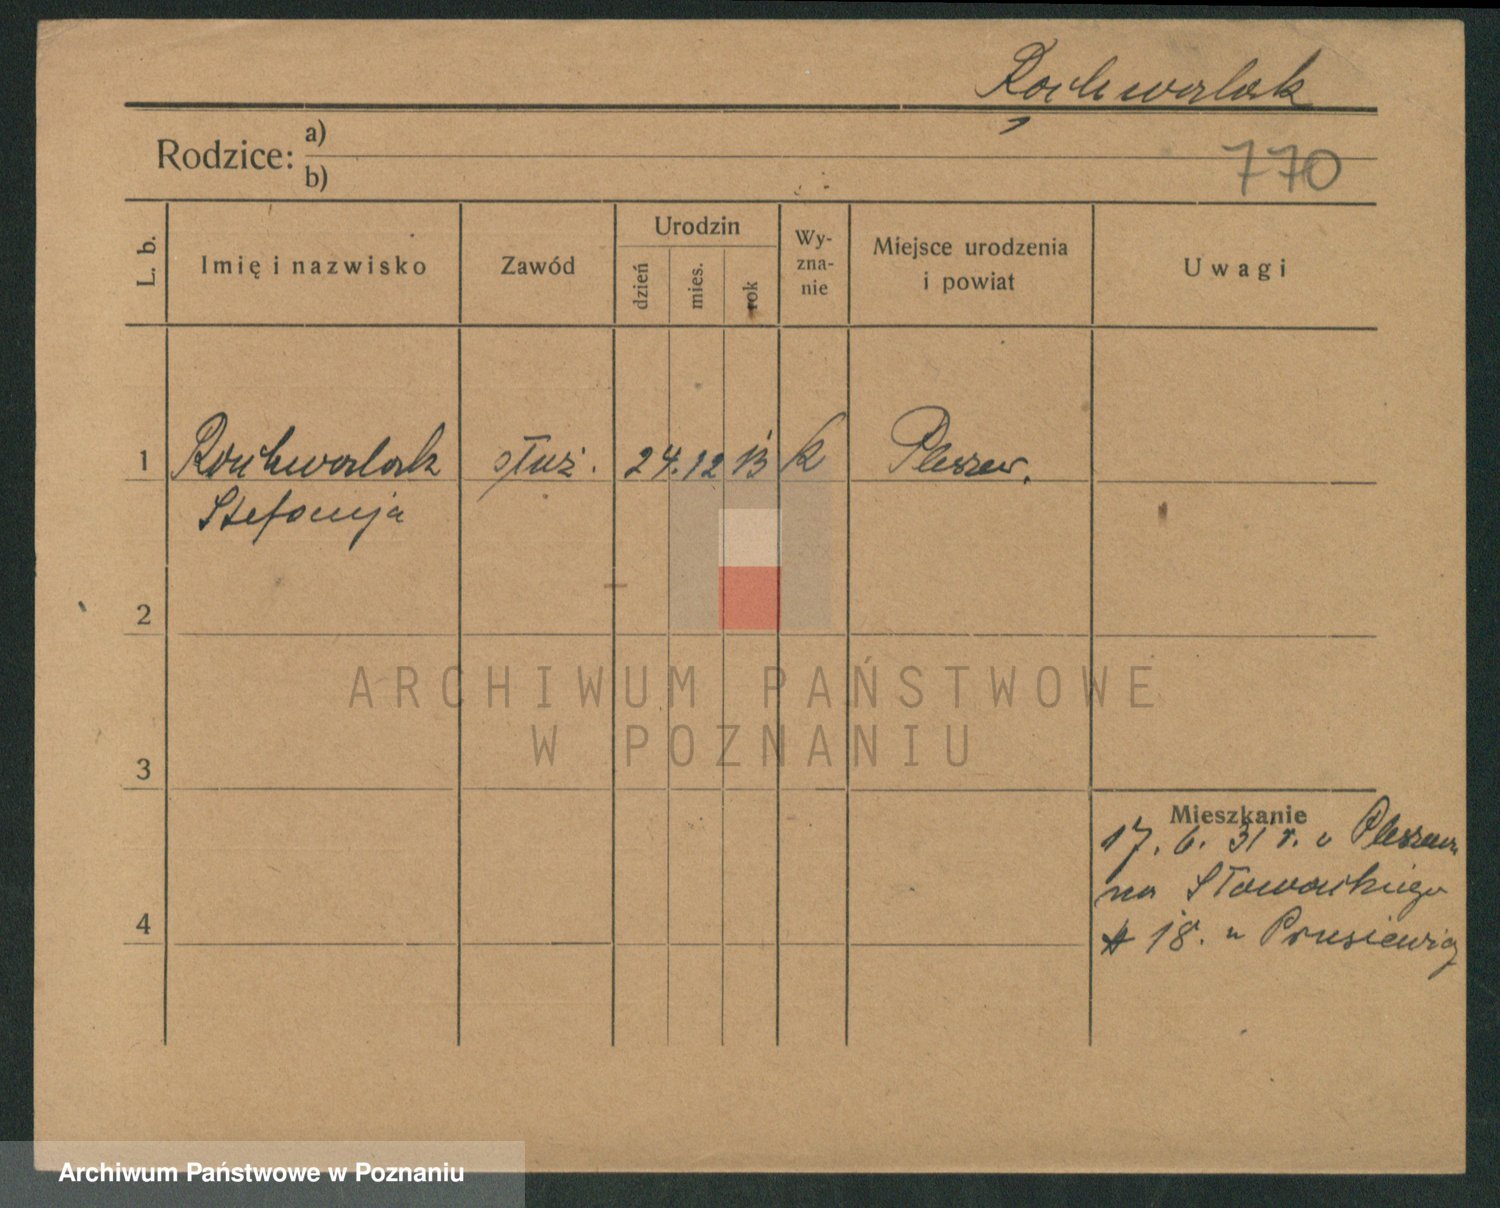 Rochwalak
Rodzice: a)
b)
770
L. b.
Imię i nazwisko
Zawód
Urodzin
dzień
mies.
rok
Wy-
zna-
nie
Miejsce urodzenia
i powiat
Uwagi
1
Rochwalak
Stefanija
służ.
24. 12 13
k
Pleszew.
2
ARCHIWUM PAŃSTWOWE
W POZNANIU
3
Mieszkanie
17. 6. 31 r. v Pleszew
na Słowackiego
18. u Prusiewicz
4
Archiwum Państwowe w Poznaniu